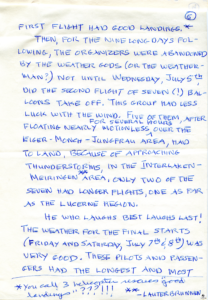 6
FIRST FLIGHT HAD GOOD LANDINGS.*
THEN, FOR THE NINE LONG DAYS FOL-
LOWING, THE ORGANIZERS WERE ABANDONED
BY THE WEATHER GODS (OR THE WEATHER-
MAN?) NOT UNTIL WEDNESDAY, JULY 5th
DID THE SECOND FLIGHT OF SEVEN (!) BAL-
LOONS TAKE OFF. THIS GROUP HAD LESS
LUCK WITH THE WIND. FIVE OF THEM, AFTER
FOR SEVERAL HOURS
FLOATING NEARLY MOTIONLESS OVER THE
EIGER-MONCH-JUNGFRAU AREA, HAD
TO LAND, BECAUSE OF APPROACHING
THUNDERSTORMS, IN THE INTERLAKEN-
MEIRINGEN** AREA, ONLY TWO OF THE
SEVEN HAD LONGER FLIGHTS, ONE AS FAR
AS THE LUCERNE REGION.
HE WHO LAUGHS LAST LAUGHS LAST!
THE WEATHER FOR THE FINAL STARTS
(FRIDAY AND SATURDAY, JULY 7th & 8th) WAS
VERY GOOD. THESE PILOTS AND PASSEN-
GERS HAD THE LONGEST AND MOST
* You call 3 helicopter rescues good
landings!!???!!!
** - LAUTERBRUNNEN